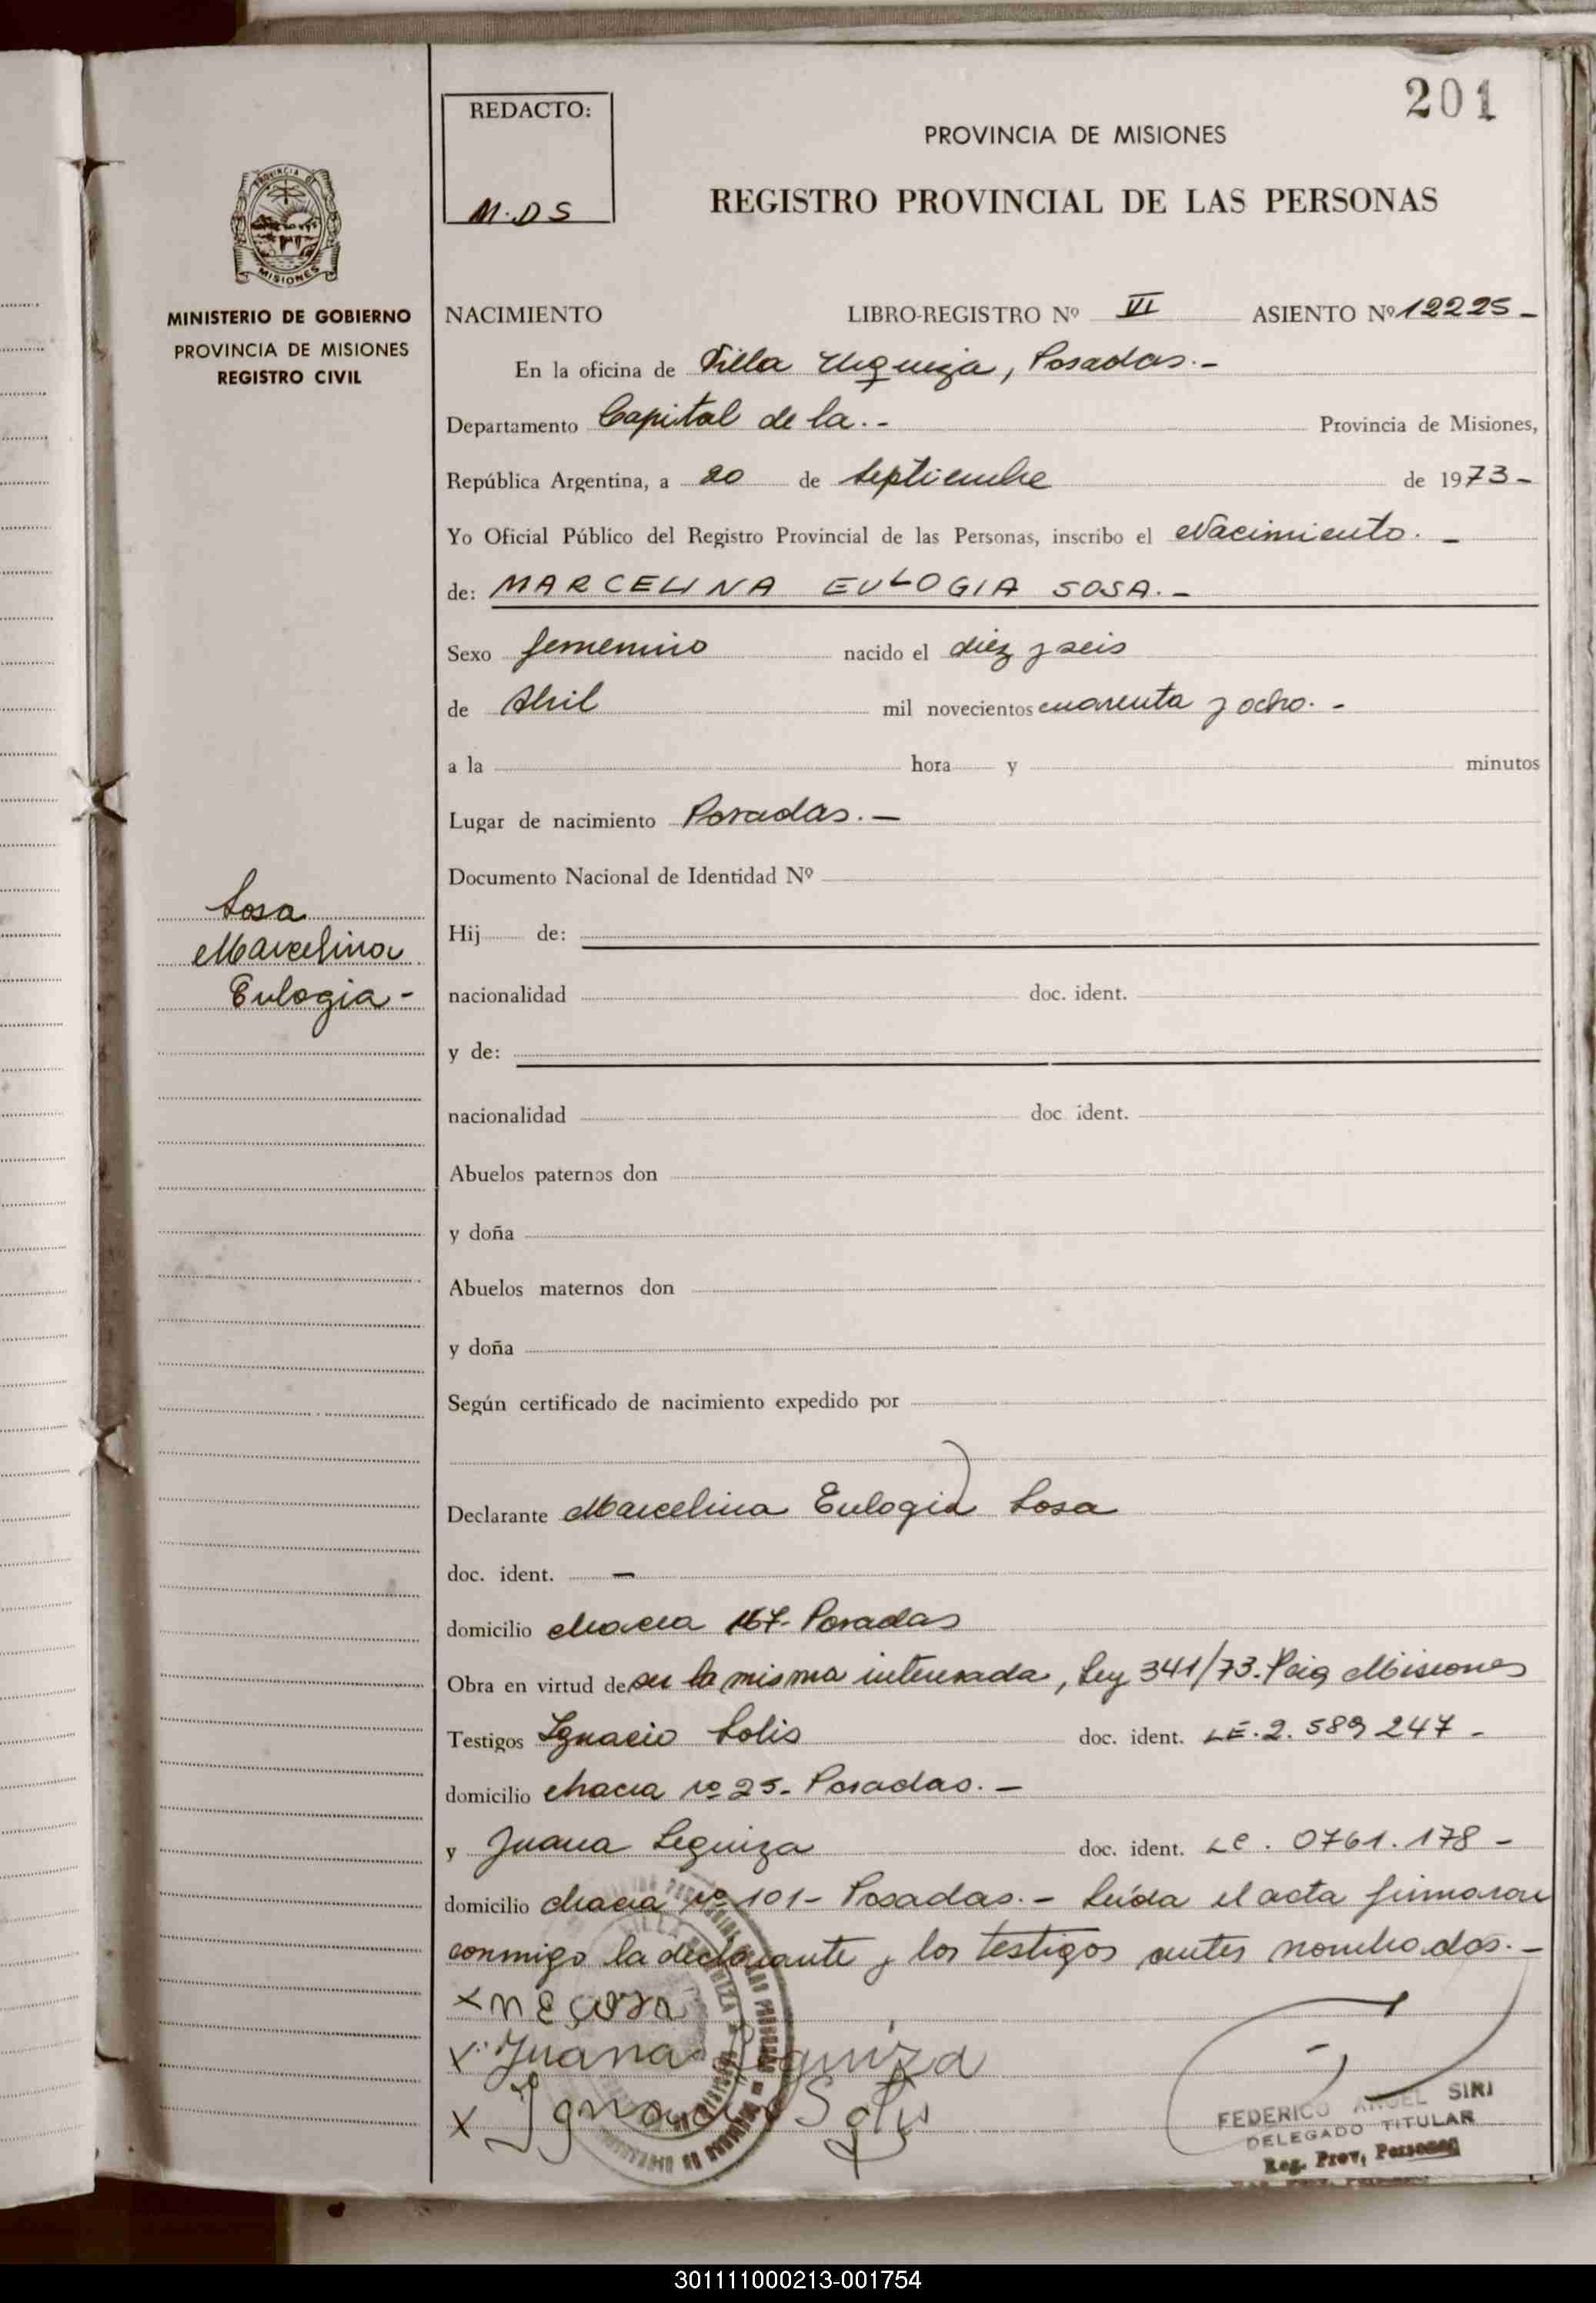 201
REDACTO:
M.D S
PROVINCIA DE MISIONES
REGISTRO PROVINCIAL DE LAS PERSONAS
PROVINCIA DE
MISIONES
MINISTERIO DE GOBIERNO
PROVINCIA DE MISIONES
REGISTRO CIVIL
NACIMIENTO LIBRO-REGISTRO Nº VI ASIENTO Nº 12225-
En la oficina de Villa Urquiza, Posadas.-
Departamento Capital de la.- Provincia de Misiones,
República Argentina, a 20 de Septiembre de 1973-
Yo Oficial Público del Registro Provincial de las Personas, inscribo el Nacimiento.-
de: MARCELINA EULOGIA SOSA.-
Sexo femenino nacido el diez y seis
de Abril mil novecientos cuarenta y ocho.-
a la hora y minutos
Lugar de nacimiento Posadas.-
Documento Nacional de Identidad Nº
Sosa
Marcelina
Eulogia-
Hij de:
nacionalidad doc. ident.
y de:
nacionalidad doc ident.
Abuelos paternos don
y doña
Abuelos maternos don
y doña
Según certificado de nacimiento expedido por
Declarante Marcelina Eulogia Sosa
doc. ident. -
domicilio chacra 167- Posadas
Obra en virtud de ser la misma interesada, Ley 341/73. Pcia Misiones
Testigos Ignacio Solis doc. ident. LE.2.589247-
domicilio chacra nº 25- Posadas.-
y Juana Leguiza doc. ident. LC. 0761.178-
domicilio chacra nº 101- Posadas.- Leída el acta firmaron
conmigo la declarante y los testigos antes nombrados.-
x Juana Leguiza
x Ignacio Solis
FEDERICO ANGEL SIRI
DELEGADO TITULAR
Reg. Prov. Personas
301111000213-001754